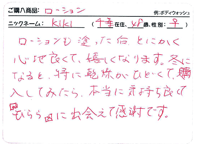 ご購入商品: ローション
例:ボディウォッシュ
ニックネーム( kiki )( 千葉 在住, 歳,性別: 女 )
ローションを塗った后とにかく
心地良くて、嬉しくなります。冬に
なると、特に乾燥がひどくて購
入してみたら、本当に気持ち良くて
に出会えて感謝です。